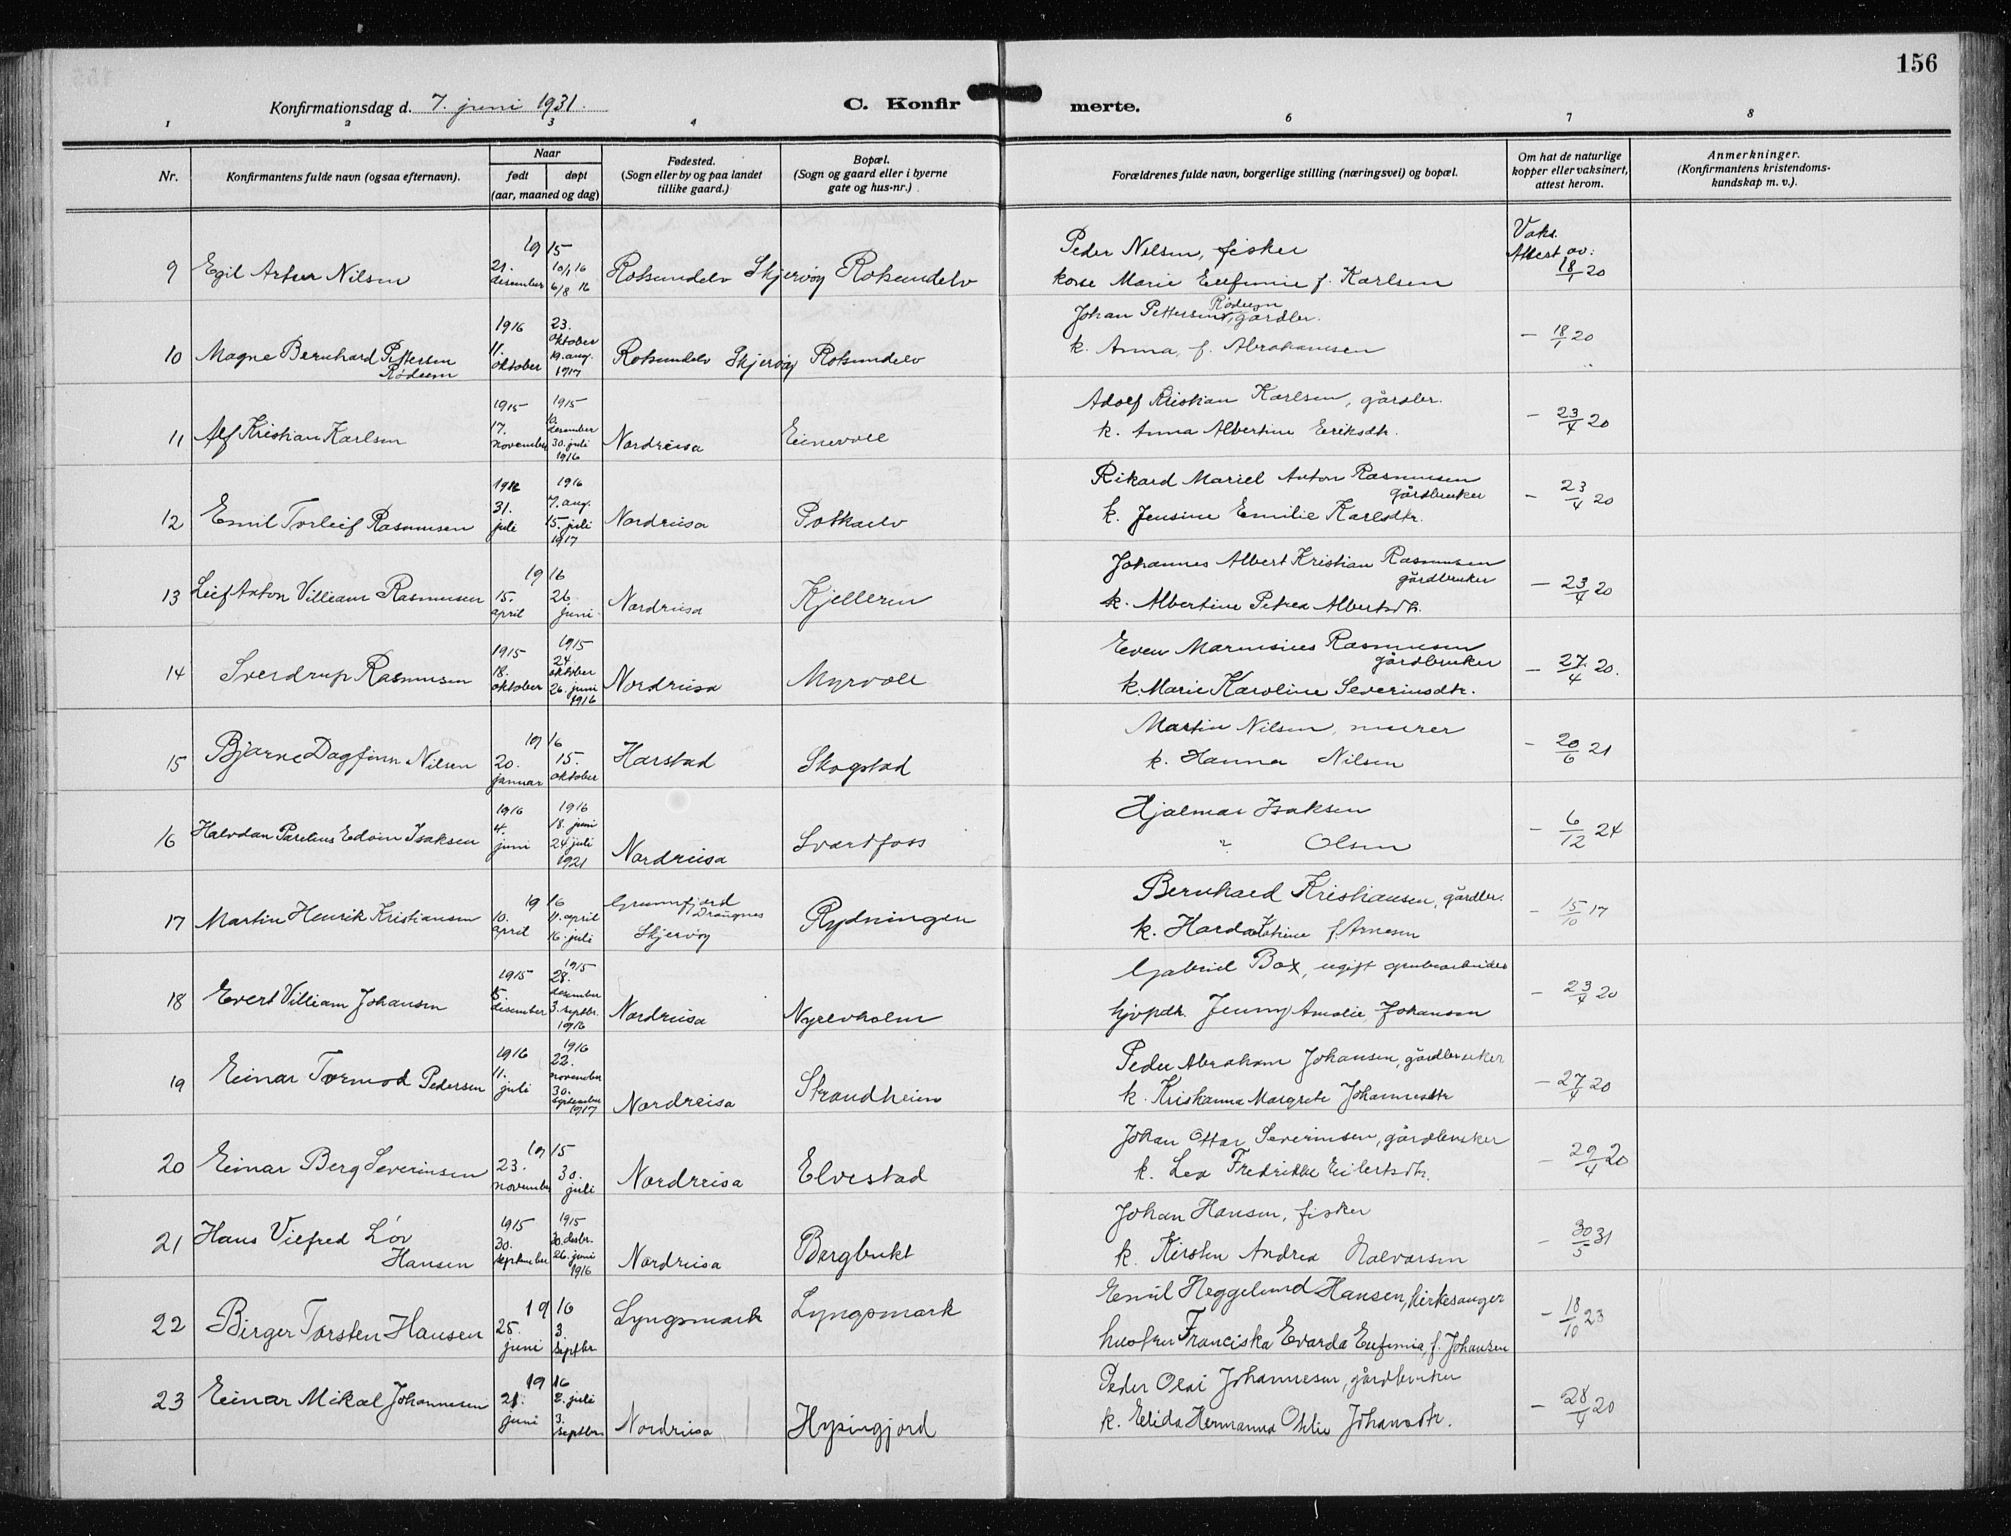 156
Konfirmationsdag d. 7. juni 1931.
C. Konfirmerte.
1 2 3 4 6 7 8
Nr.
Konfirmantens fulde navn (ogsaa efternavn).
Naar
født døpt
(aar, maaned og dag)
Fødested.
(Sogn eller by og paa landet
tillike gaard.)
Bopæl.
(Sogn og gaard eller i byerne
gate og hus-nr.)
Forældrenes fulde navn, borgerlige stilling (næringsvei) og bopæl.
Om hat de naturlige
kopper eller vaksinert,
attest herom.
Anmerkninger.
(Konfirmantens kristendoms-
kundskap m. v.).
9 Egil Artur Nilsen
19 15
21. desember
10/1 16
6/8 16
Rotsundelv Skjervøy Rotsundelv
Peder Nilsen, fisker
kone Marie Eufemie f. Karlsen
Vaks.
Attest av:
18/1 20
10 Magne Bernhard Pettersen
Rødsem
1916 11. oktober
23. oktober
19. aug. 1917
Rotsundelv Skjervøy Rotsundelv
Johan Pettersen, gårdbr.
k. Anna, f. Abrahamsen
- 18/1 20
11 Alf Kristian Karlsen
1915 17. november
1915 10. desember
30. juli 1916
Nordreisa
Einevoll
Adolf Kristian Karlsen, gårdbr.
k. Anna Albertine Eriksdtr.
- 23/4 20
12 Emil Torleif Rasmussen
1916 31. juli
1916 7. aug.
15. juli 1917
Nordreisa
Potkaelv
Rikard Mariel Anton Rasmussen
gårdbruker
k. Jensine Emilie Karlsdtr.
- 23/4 20
13 Leif Anton Villiam Rasmussen
19 16
15. april
26. juni
Nordreisa
Kjelleren
Johannes Albert Kristian Rasmussen
gårdbruker
k. Albertine Petrea Albertsdtr.
- 23/4 20
14 Sverdrup Rasmussen
1915 18. oktober
1915 24. oktober
26. juni 1916
Nordreisa
Myrvoll
Even Marensius Rasmussen
gårdbruker
k. Marie Karoline Severinsdtr.
- 27/4 20.
15 Bjarne Dagfinn Nilsen
19 16
20. januar
15. oktober
Harstad
Skogstad
Martin Nilsen, murer
k. Hanna Nilsen
- 20/6 21
16 Halvdan Parelius Edvin Isaksen
1916 4. juni
1916 18. juni
24 juli 1921
Nordreisa
Svartfoss
Hjalmar Isaksen
" Olsen
- 6/12 24
17 Martin Henrik Kristiansen
19 16
10. april
11. april
16. juli
Grunnfjord
Skjervøy
Rydningen
Bernhard Kristiansen, gårdbr.
k. Harda Katrine f. Arnesen
- 15/10 17
18 Evert Villiam Johansen
1915 5. desember
1915 28. desember
3. septbr. 1916
Nordreisa
Nyrevholm
Gabriel Box, ugift grubearbeider
hjvpdtr. Jenny Amalie Johansen
- 23/4 20
19 Einar Tormod Pedersen
1916 11. juli
1916 22. november
30. september 1917
Nordreisa
Strandheim
Peder Abraham Johansen, gårdbruker
k. Kristianna Margrete Johannesdtr
- 27/4 20
20 Einar Berg Severinsen
19 15
23. november
30. juli
Nordreisa
Elvestad
Johan Ottar Severinsen, gårdbruker
k. Lea Fredrikke Eilertsdtr.
- 29/4 20
21 Hans Vilfred Löv
Hansen
1915 30. september
1915 30. desbr.
26. juni 1916
Nordreisa
Bergbukt
Johan Hansen, fisker
k. Kirsten Andrea Halvarsen
- 30/5 31
22 Birger Torsten Hansen
19 16
25. juni
3. septbr.
Lyngsmark
Lyngsmark
Emil Heggelund Hansen, kirkesanger
hustru Franciska Evarda Eufemia, f. Johansen
- 18/10 23
23 Einar Mikal Johannesen
19 16
21. juni
2. juli
3. septbr.
Nordreisa
Hysingjord
Peder Olai Johannesen, gårdbruker
k. Elida Hermanna Otilie Johansdtr.
- 28/4 20